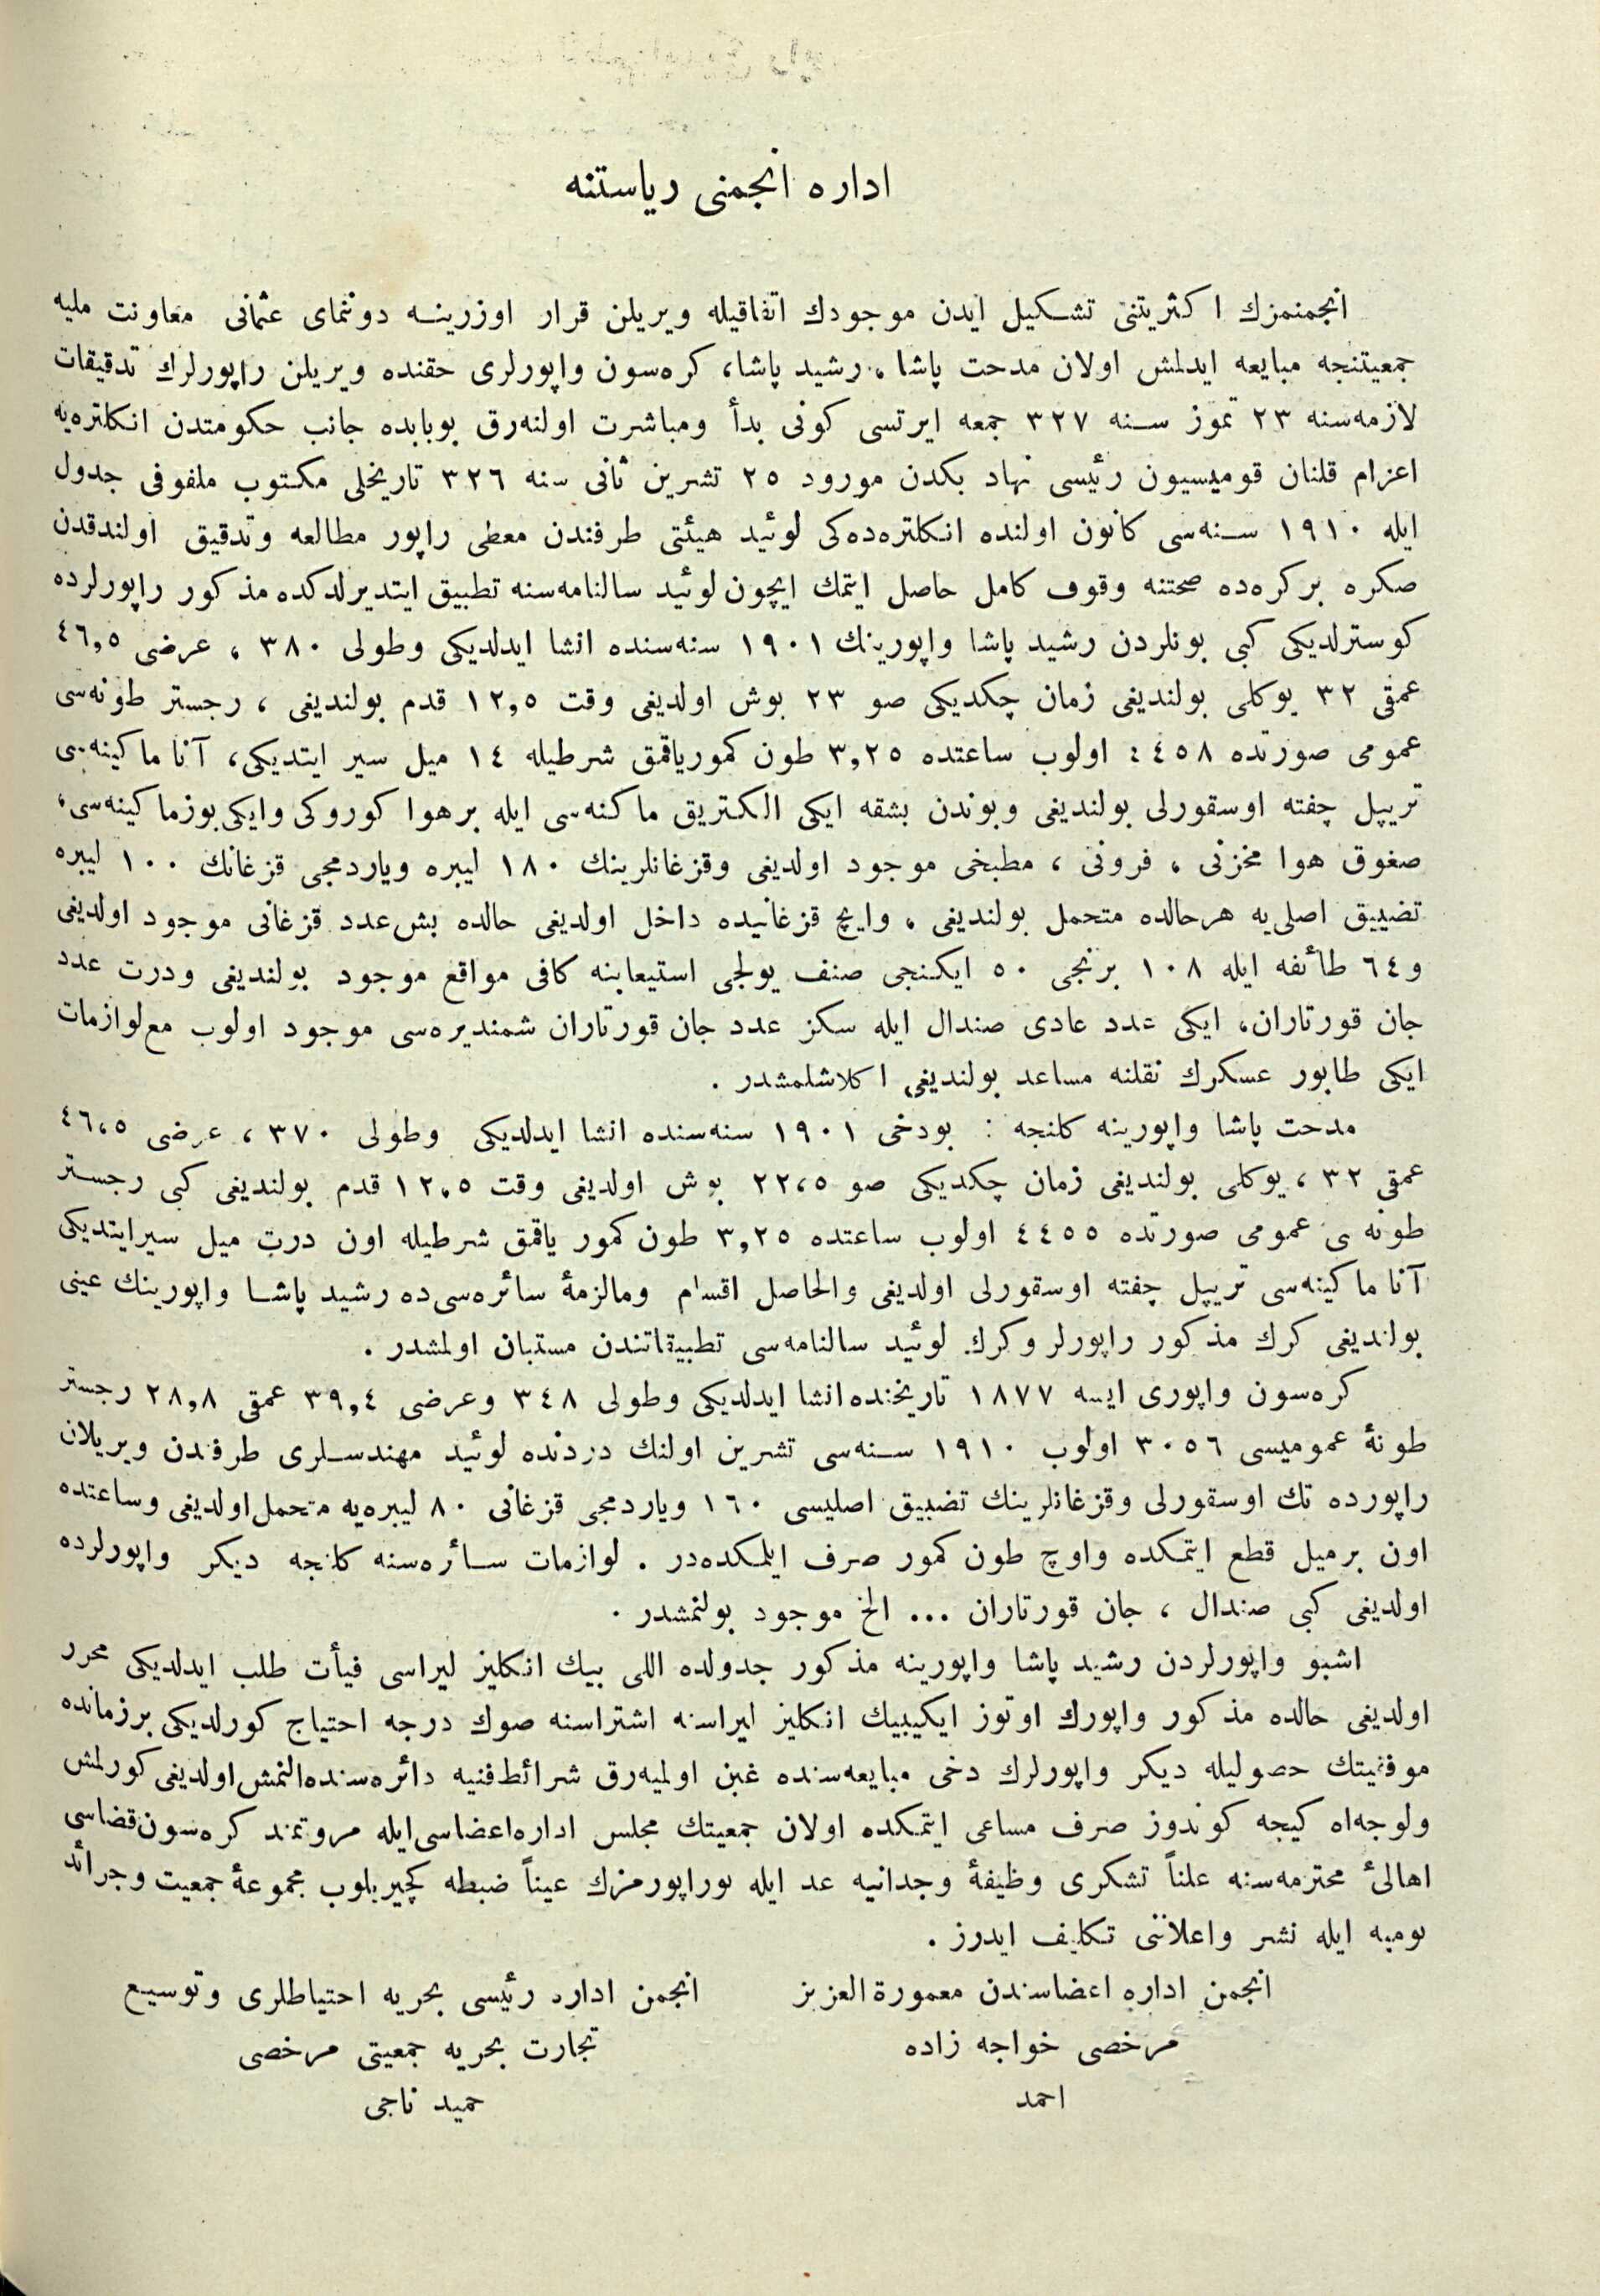 اداره انجمنی ریاستنه
انجمنمزك اكثریتنی تشكیل ایدن موجودك اتفاقیله ویریلن قرار اوزرینه دونمای عثمانی معاونت ملیه
جمعیتنجه مبایعه ایدلمش اولان مدحت پاشا ، رشید پاشا، كره‌سون واپورلری حقنده ویریلن راپورلرك تدقیقات
لازمه‌سنه ٢٣ تموز سنه ٣٢٧ جمعه ایرتسی كونی بدأ ومباشرت اولنه‌رق بوبابده جانب حكومتدن انكلتره‌یه
اعزام قلنان قومیسیون رئیسی نهاد بكدن مورود ٢٥ تشرین ثانی سنه ٣٢٦ تاریخلی مكتوب ملفوفی جدول
ایله ١٩١٠ سنه‌سی كانون اولنده انكلتره‌ده‌كی لوئید هیئتی طرفندن معطی راپور مطالعه وتدقیق اولندقدن
صكره بركره‌ده صحتنه وقوف كامل حاصل ایتمك ایچون لوئید سالنامه‌سنه تطبیق ایتدیرلدكده مذكور راپورلرده
كوسترلدیكی كبی بونلردن رشید پاشا واپورینك ١٩٠١ سنه‌سنده انشا ایدلدیكی وطولی ٣٨٠ ، عرضی ٤٦,٥
عمقی ٣٢ یوكلی بولندیغی زمان چكدیكی صو ٢٣ بوش اولدیغی وقت ١٢,٥ قدم بولندیغی ، رجستر طونه‌سی
عمومی صورتده ٤٤٥٨ اولوب ساعتده ٣,٢٥ طون كمور یاقمق شرطیله ١٤ میل سیر ایتدیكی، آنا ماكینه‌سی
تریپل چفته اوسقورلی بولندیغی وبوندن بشقه ایكی الكتریق ماكنه‌سی ایله برهوا كوروكی وایكی بوزماكینه‌سی،
صغوق هوا مخزنی ، فرونی ، مطبخی موجود اولدیغی وقزغانلرینك ١٨٠ لیبره ویاردمجی قزغانك ١٠٠ لیبره
تضییق اصلی‌یه هرحالده متحمل بولندیغی ، وایچ قزغانیده داخل اولدیغی حالده بش‌عدد قزغانی موجود اولدیغی
و٦٤ طائفه ایله ١٠٨ برنجی ٥٠ ایكنجی صنف یولجی استیعابنه كافی مواقع موجود بولندیغی ودرت عدد
جان قورتاران، ایكی عدد عادی صندال ایله سكز عدد جان قورتاران شمندیره‌سی موجود اولوب مع‌لوازمات
ایكی طابور عسكرك نقلنه مساعد بولندیغی اكلاشلمشدر .
مدحت پاشا واپورینه كلنجه : بودخی ١٩٠١ سنه‌سنده انشا ایدلدیكی وطولی ٣٧٠ ، عرضی ٤٦،٥
عمقی ٣٢ ، یوكلی بولندیغی زمان چكدیكی صو ٢٢،٥ بوش اولدیغی وقت ١٢،٥ قدم بولندیغی كبی رجستر
طونه‌سی عمومی صورتده ٤٤٥٥ اولوب ساعتده ٣,٢٥ طون كمور یاقمق شرطیله اون درت میل سیرایتدیكی
آنا ماكینه‌سی تریپل چفته اوسقورلی اولدیغی والحاصل اقسام ومالزمهٔ سائره‌سی‌ده رشید پاشا واپورینك عینی
بولندیغی كرك مذكور راپورلر وكرك لوئید سالنامه‌سی تطبیقاتندن مستبان اولمشدر .
كره‌سون واپوری ایسه ١٨٧٧ تاریخنده انشا ایدلدیكی وطولی ٣٤٨ وعرضی ٣٩,٤ عمقی ٢٨,٨ رجستر
طونهٔ عمومیسی ٣٠٥٦ اولوب ١٩١٠ سنه‌سی تشرین اولنك دردنده لوئید مهندسلری طرفندن ویریلان
راپورده تك اوسقورلی وقزغانلرینك تضییق اصلیسی ١٦٠ ویاردمجی قزغانی ٨٠ لیبره‌یه متحمل اولدیغی وساعتده
اون برمیل قطع ایتمكده واوچ طون كمور صرف ایلمكده‌در . لوازمات سائره‌سنه كلنجه دیكر واپورلرده
اولدیغی كبی صندال ، جان قورتاران ... الخ موجود بولنمشدر .
اشبو واپورلردن رشید پاشا واپورینه مذكور جدولده اللی بیك انكلیز لیراسی فیأت طلب ایدلدیكی محرر
اولدیغی حالده مذكور واپورك اوتوز ایكیبیك انكلیز لیراسنه اشتراسنه صوك درجه احتیاج كورلدیكی برزمانده
موفقیتك حصولیله دیكر واپورلرك دخی مبایعه‌سنده غبن اولمیه‌رق شرائط فنیه دائره‌سنده‌النمش‌اولدیغی كورلمش
ولوجه‌اه كیجه كوندوز صرف مساعی ایتمكده اولان جمعیتك مجلس اداره‌اعضاسی‌ایله مروتمند كره‌سون‌قضاسی
اهالیٔ محترمه‌سنه علناً تشكری وظیفهٔ وجدانیه عد ایله بوراپورمزك عیناً ضبطه كچیریلوب مجموعهٔ جمعیت وجرائد
یومیه ایله نشر واعلاننی تكلیف ایدرز .
انجمن اداره اعضاسندن معمورة العزیز
مرخصی خواجه زاده
احمد
انجمن اداره رئیسی بحریه احتیاطلری وتوسیع
تجارت بحریه جمعیتی مرخصی
حمید ناجی